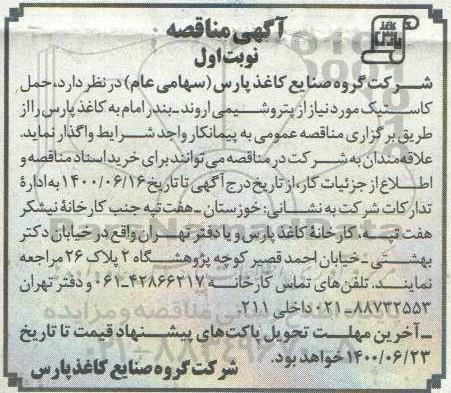 کاغذ پارس
آگهی مناقصه
نوبت اول
شرکت گروه صنایع کاغذ پارس (سهامی عام) در نظر دارد، حمل
کاستیک مورد نیاز از پتروشیمی اروند ـ بندر امام به کاغذ پارس را از
طریق برگزاری مناقصه عمومی به پیمانکار واجد شرایط واگذار نماید.
علاقه‌مندان به شرکت در مناقصه می‌توانند برای خرید اسناد مناقصه و
اطلاع از جزئیات کار، از تاریخ درج آگهی تا تاریخ ۱۴۰۰/۰۶/۱۶ به ادارهٔ
تدارکات شرکت به نشانی: خوزستان ـ هفت تپه جنب کارخانهٔ نیشکر
هفت تپه کارخانهٔ کاغذ پارس و یا دفتر تهران واقع در خیابان دکتر
بهشتی ـ خیابان احمد قصیر کوچه پژوهشگاه ۲ پلاک ۲۶ مراجعه
نمایند. تلفن‌های تماس کارخانه ۴۲۸۶۶۲۱۷-۰۶۱ و دفتر تهران
۸۸۷۳۲۵۵۳-۰۲۱ داخلی ۲۱۱.
ـ آخرین مهلت تحویل پاکت‌های پیشنهاد قیمت تا تاریخ
۱۴۰۰/۰۶/۲۳ خواهد بود.
شرکت گروه صنایع کاغذ پارس